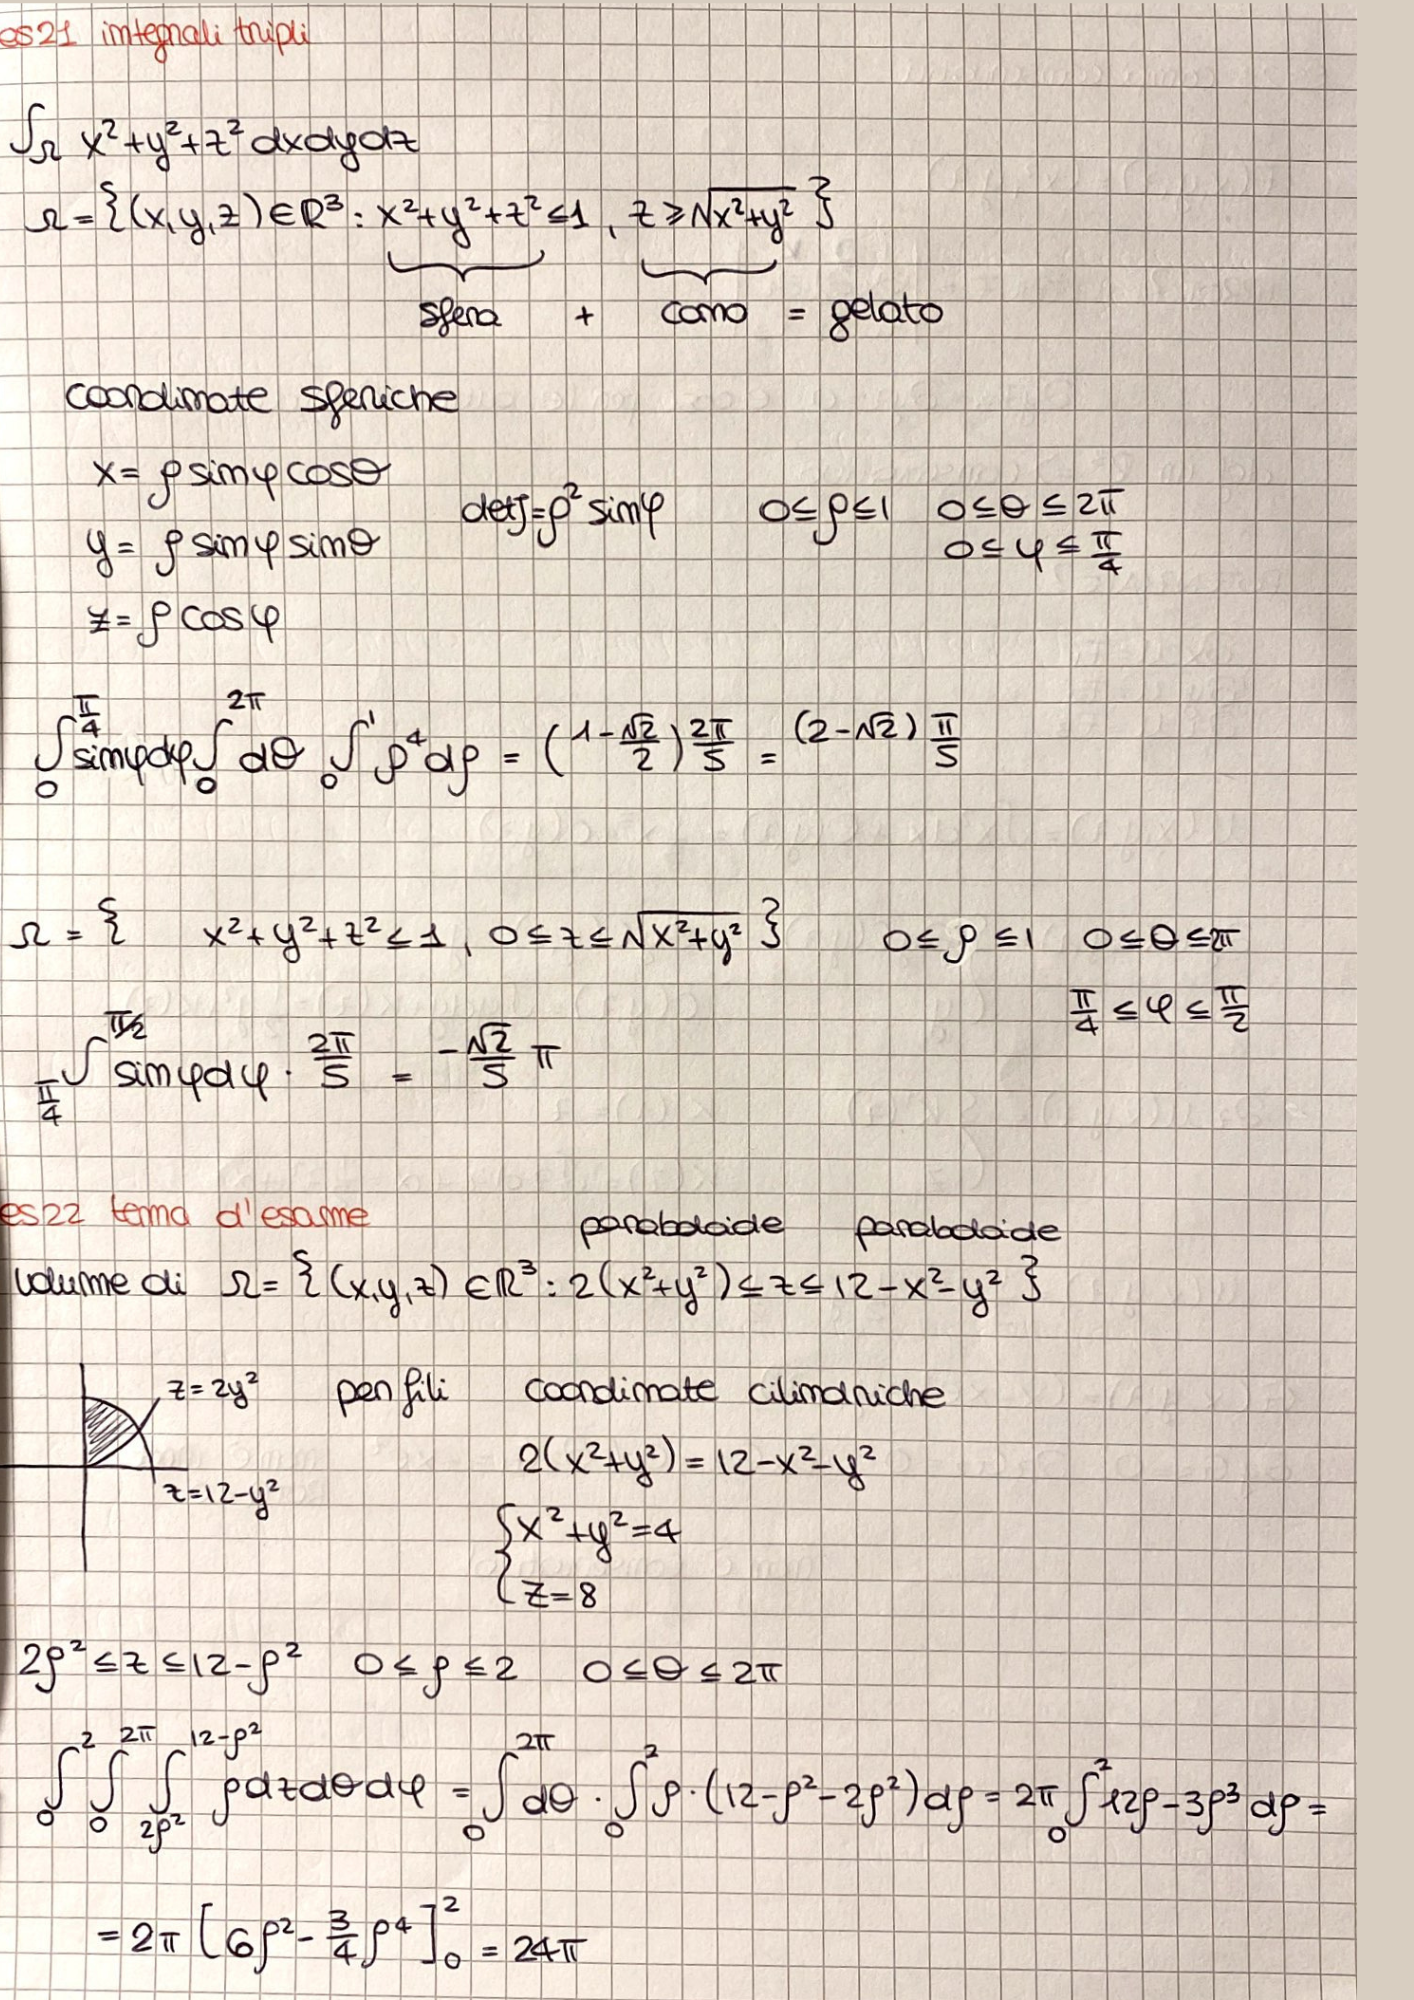 es21 integrali tripli
∫_Ω x²+y²+z² dxdydz
Ω = {(x,y,z) ∈ ℝ³ : x²+y²+z² ≤ 1, z ≥ √(x²+y²)}
sfera + cono = gelato
coordinate sferiche
x = ρ sinφ cosθ
y = ρ sinφ sinθ
z = ρ cosφ
detJ = ρ² sinφ 0 ≤ ρ ≤ 1 0 ≤ θ ≤ 2π
0 ≤ φ ≤ π/4
∫_0^{π/4} sinφdφ ∫_0^{2π} dθ ∫_0^1 ρ⁴dρ = (1-√2/2) 2π/5 = (2-√2) π/5
Ω = { x²+y²+z² ≤ 1, 0 ≤ z ≤ √(x²+y²)} 0 ≤ ρ ≤ 1 0 ≤ θ ≤ 2π
π/4 ≤ φ ≤ π/2
∫_{π/4}^{π/2} sinφdφ · 2π/5 = -√2/5 π
es22 tema d'esame
paraboloide paraboloide
volume di Ω = {(x,y,z) ∈ ℝ³ : 2(x²+y²) ≤ z ≤ 12-x²-y²}
z=2y² per fili coordinate cilindriche
z=12-y²
2(x²+y²) = 12-x²-y²
{x²+y²=4
z=8
2ρ² ≤ z ≤ 12-ρ² 0 ≤ ρ ≤ 2 0 ≤ θ ≤ 2π
∫_0^2 ∫_0^{2π} ∫_{2ρ²}^{12-ρ²} ρdzdθdφ = ∫_0^{2π} dθ · ∫_0^2 ρ·(12-ρ²-2ρ²)dρ = 2π ∫_0^2 12ρ-3ρ³ dρ =
= 2π [6ρ² - 3/4 ρ⁴]_0^2 = 24π